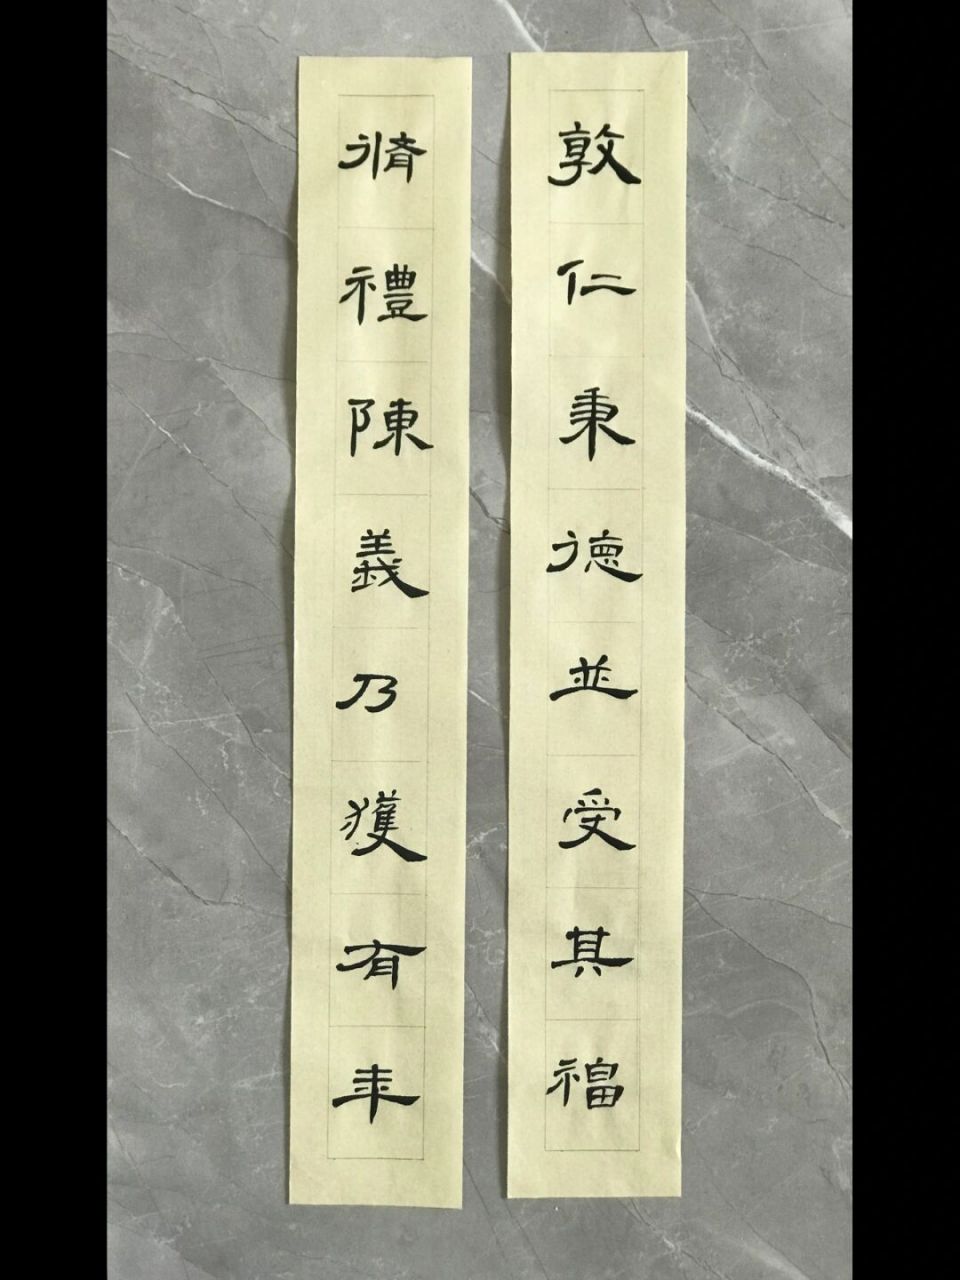 敦仁秉德並受其福
脩禮陳義乃獲有年